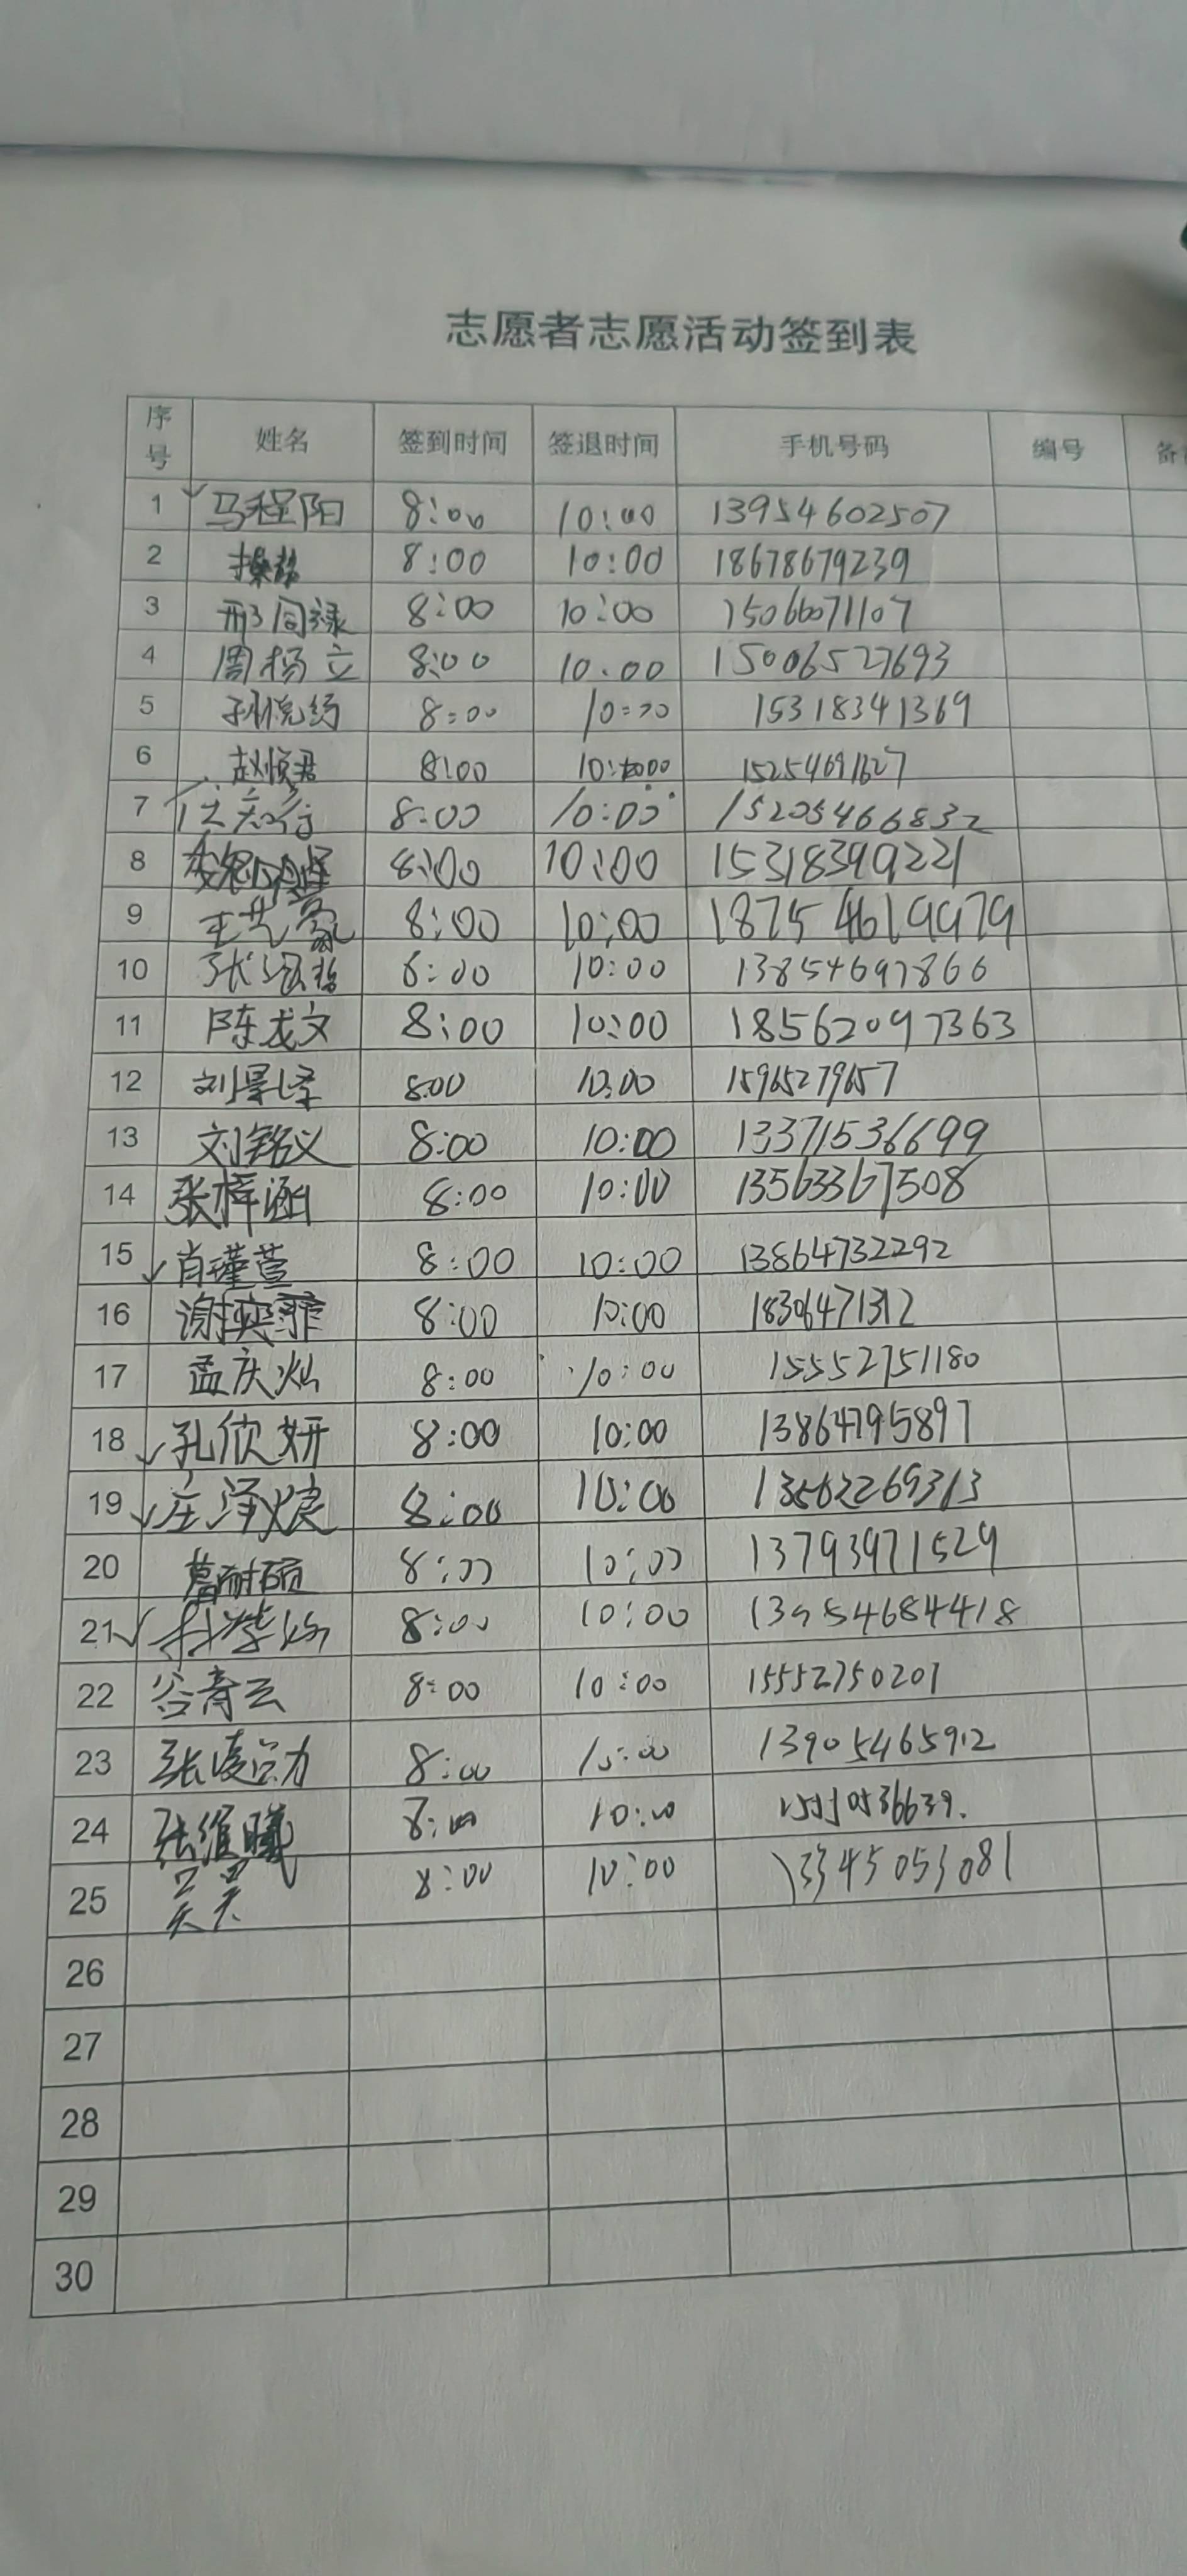 志愿者志愿活动签到表
序号 姓名 签到时间 签退时间 手机号码 编号 备
1 马程阳 8:00 10:00 13954602507
2 8:00 10:00 18678679239
3 邢同禄 8:00 10:00 15066071107
4 周杨立 8:00 10:00 15006527693
5 8:00 10:00 15318341369
6 赵顺君 8:00 10:00 15254691627
7 8:00 10:00 15205466832
8 8:00 10:00 15318399221
9 王艺豪 8:00 10:00 18754619979
10 8:00 10:00 13854697866
11 陈龙文 8:00 10:00 18562097363
12 8:00 10:00 15965279657
13 刘铭义 8:00 10:00 13371536699
14 张梓涵 8:00 10:00 13563367508
15 肖瑾萱 8:00 10:00 13864732292
16 8:00 10:00 18306471312
17 孟庆灿 8:00 10:00 15552751180
18 孔欣妍 8:00 10:00 13864795897
19 8:00 10:00
20 葛耐硕 8:00 10:00 13793971529
21 8:00 10:00 13954684418
22 谷奇云 8:00 10:00 15552750201
23 8:00 10:00 13905465912
24 张维曦 8:00 10:00
25 吴昊 8:00 10:00 13345053081
26
27
28
29
30